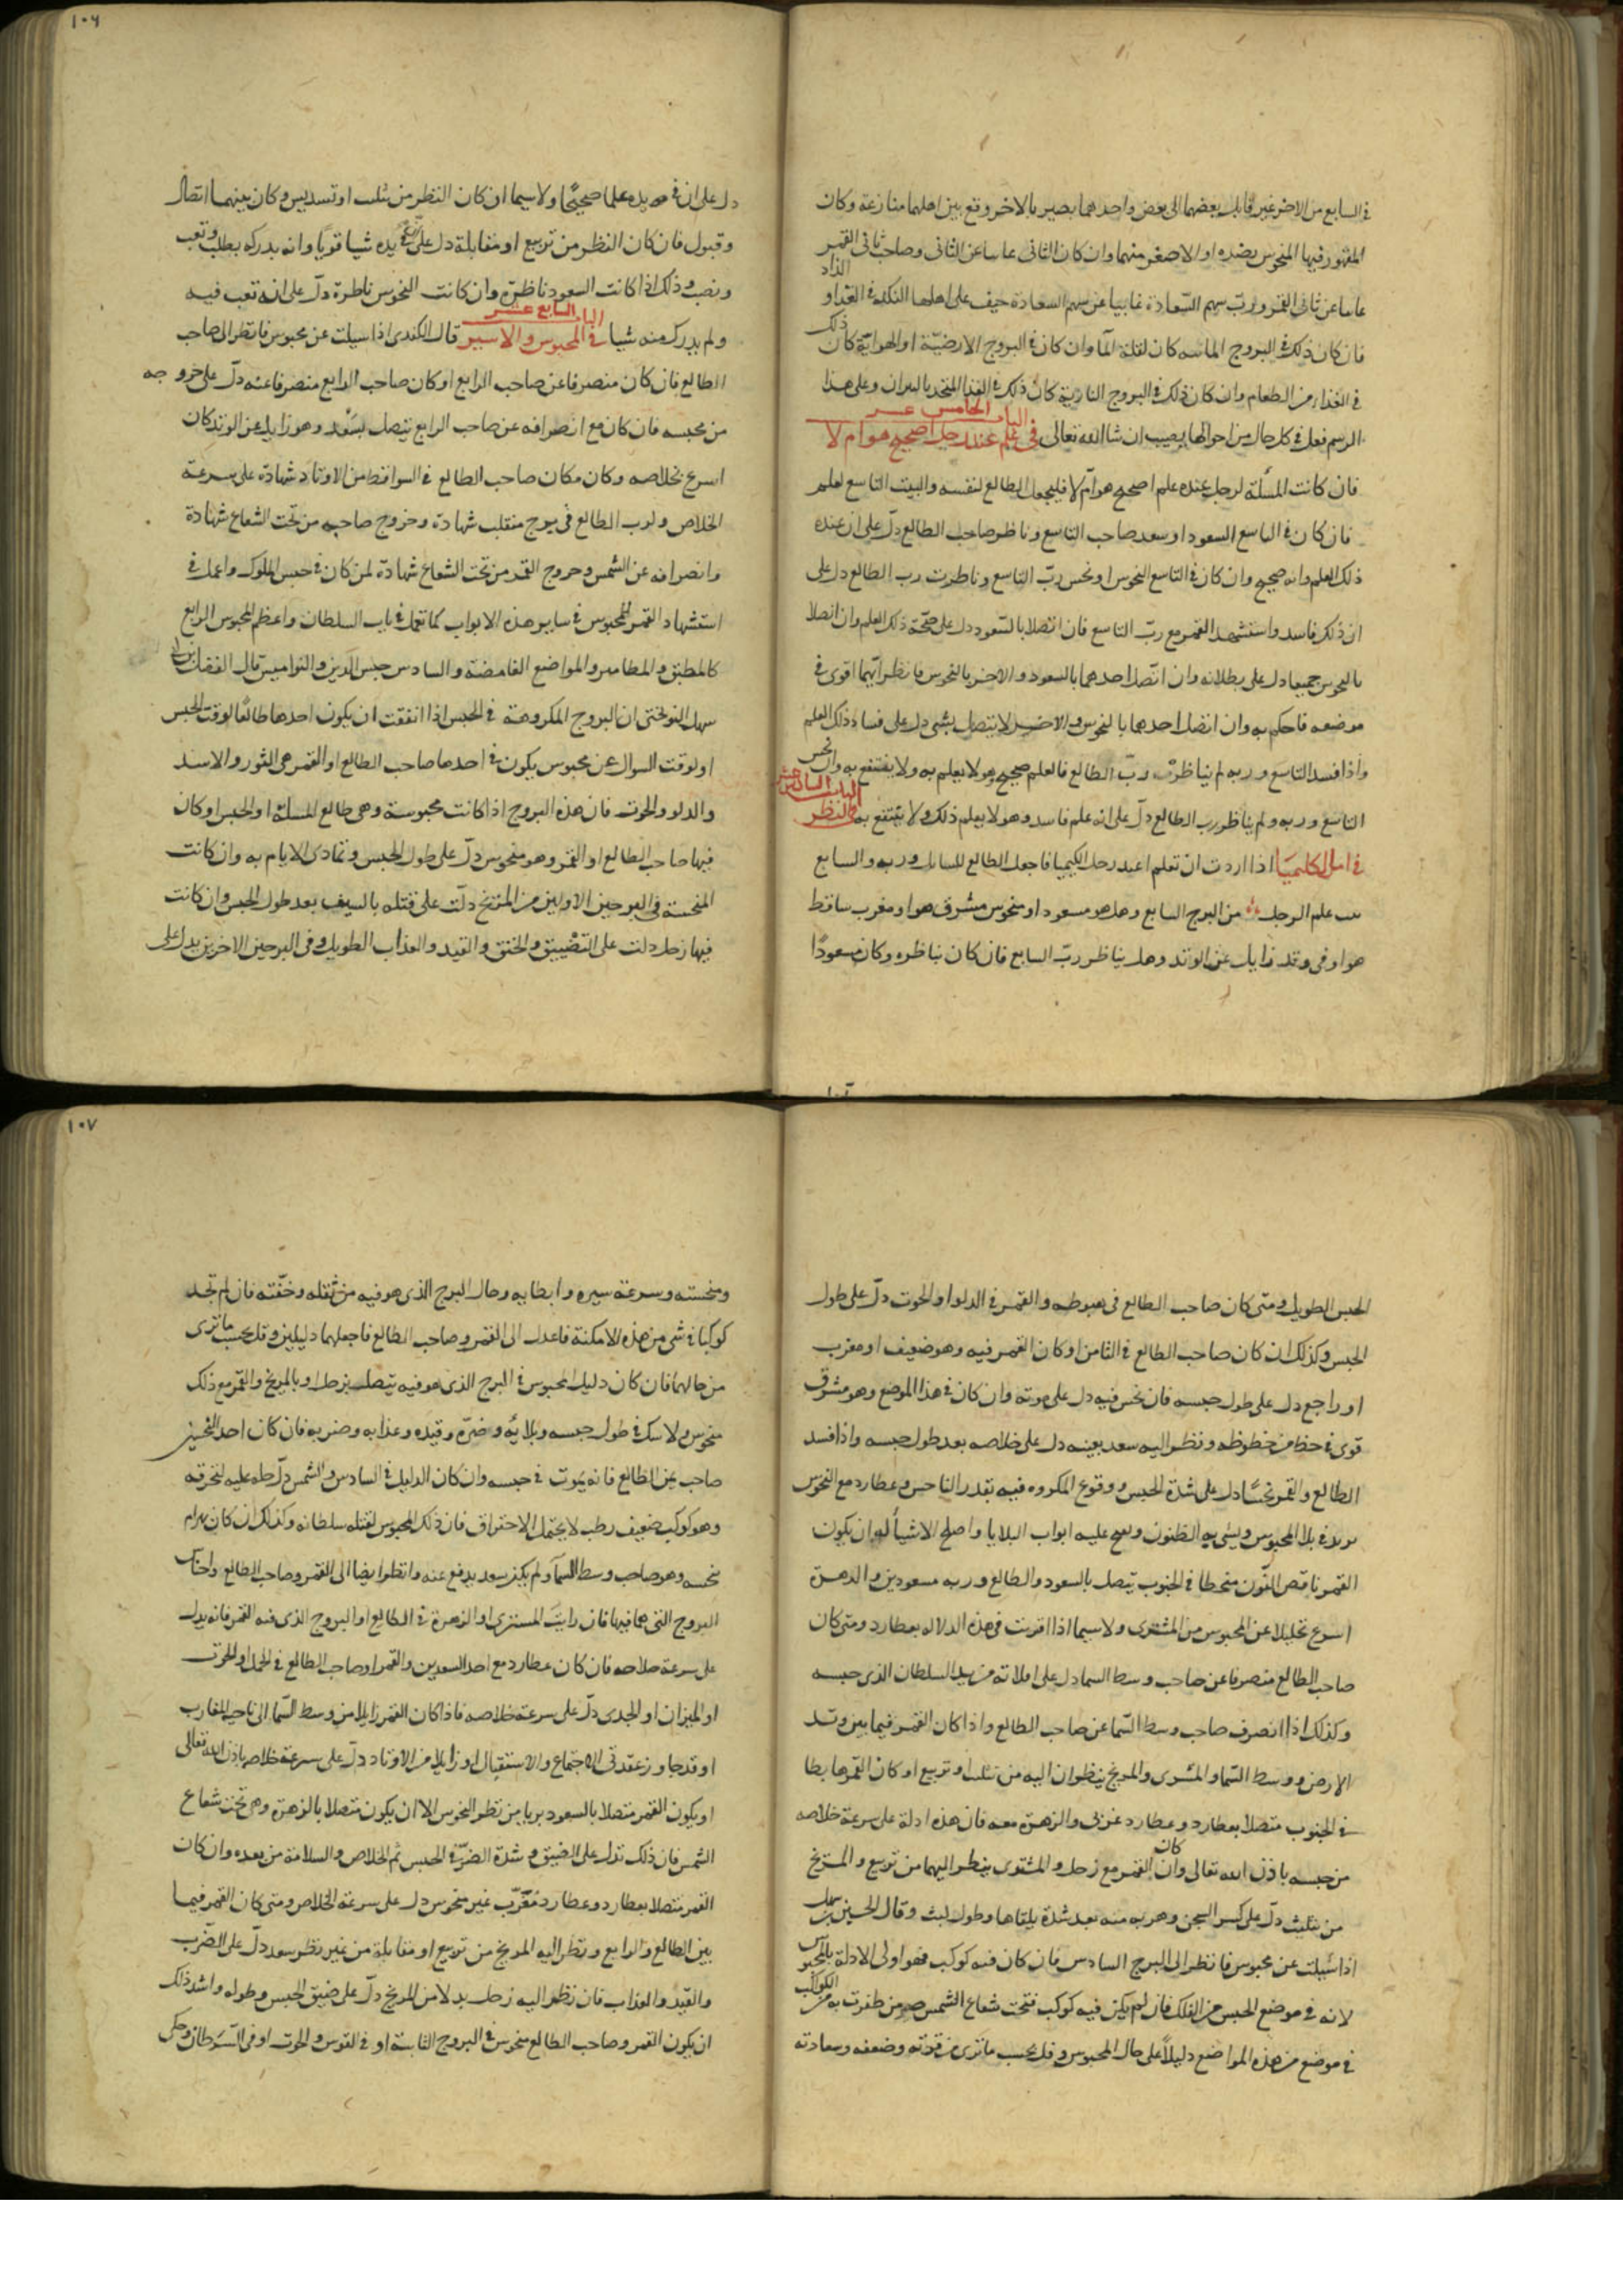 في السابع من الاخر غير قابل بعضهما الى بعض واحدهما بصير بالاخر وقع بين اهلهما منازعة وكان
المقهور فيها المنحوس بضده او الاصغر منهما وان كان الثاني عاسا عن الثاني وصاحب ثاني القمر
عاسا عن ثاني القمر ورب سهم السعادة غايبا عن سهم السعادة خيف على اهلها النكد في الغذا و
الذاد
فان كان ذلك في البروج المائيه كان لقلة الما وان كان في البروج الارضية او الهوائية كان ذلك
في الغذا من الطعام وان كان ذلك في البروج النارية كان ذلك في الغذا المتخذ بالنيران وعلى هذا
الباب الخامس عشر
الرسم فعل في كل حال من احوالها يصيب ان شا الله تعالى في علم عند رجل اصحيح هو ام لا
فان كانت المسئلة لرجل عنده علم اصحيح هو ام لا فليجعل الطالع لنفسه والبيت التاسع لعلم
فان كان في التاسع السعود او سعد صاحب التاسع وناظر صاحب الطالع دل على ان عنده
ذلك العلم وانه صحيح وان كان في التاسع النحوس او نحس رب التاسع وناظرت رب الطالع دل على
ان ذلك فاسد واستشهد القمر مع رب التاسع فان اتصلا بالسعود دل على صحة ذلك العلم وان اتصلا
بالنحوس جميعا دل على بطلانه وان اتصل احدهما بالسعود والاخر بالنحوس فانظر ايهما اقوى في
موضعه فاحكم به وان اتصل احدهما بالنحوس والاخر لا يتصل بشي دل على فساد ذلك العلم
واذا فسد التاسع وربه لم يناظر رب الطالع فالعلم صحيح وهو لا يعلم به ولا ينتفع به وان نحس
الباب السادس عشر
التاسع وربه ولم يناظر رب الطالع دل على انه علم فاسد وهو لا يعلم ذلك ولا ينتفع به في النظر
في اهل الكيميا اذا اردت ان تعلم اعند رجل الكيميا فاجعل الطالع للسايل وربه والسابع
علم الرجل من البرج السابع وهل هو مسعود او منحوس مشرق هو او مغرب ساقط
هو او في وتد زايل عن الوتد وهل يناظر رب السابع فان كان يناظره وكان مسعودا
١٠٦
دل على ان في يده علما صحيحا ولا سيما ان كان النظر من تثليث او تسديس وكان بينهما اتصال
وقبول فان كان النظر من تربيع او مقابلة دل على في يده شيا قويا وانه يدركه بطلب وتعب
ونصب وذلك اذا كانت السعود ناظرة وان كانت النحوس ناظرة دل على انه تعب فيه
الباب السابع عشر
ولم يدرك منه شيا في المحبوس والاسير قال الكندي اذا سيلت عن محبوس فانظر الى صاحب
الطالع فان كان منصرفا عن صاحب الرابع او كان صاحب الرابع منصرفا عنه دل على خروجه
من محبسه فان كان مع انصرافه عن صاحب الرابع يتصل بسعد وهو زايل عن الوتد كان
اسرع لخلاصه وكان مكان صاحب الطالع في السواقط من الاوتاد شهادة على سرعة
الخلاص ولرب الطالع في برج منقلب شهادة وخروج صاحبه من تحت الشعاع شهادة
وانصرافه عن الشمس وخروج القمر من تحت الشعاع شهادة لمن كان في حبس الملوك واعمل في
استشهاد القمر للمحبوس في ساير هذه الابواب كما تعمل في باب السلطان واعظم المحبوس الرابع
كالمطبق والمطامير والمواضع الغامضة والسادس حبس الدين والنواميس قال الفضل بن
سهل النوبختي ان البروج المكروهة في الحبس اذا اتفقت ان يكون احدها طالعا لوقت الحبس
او لوقت السوال عن محبوس يكون في احدها صاحب الطالع او القمر هي الثور والاسد
والدلو والحوت فان هذه البروج اذا كانت محبوسة وهي طالع المسلة او الحبس او كان
فيها صاحب الطالع او القمر وهو منحوس دل على طول الحبس وتمادي الايام به وان كانت
المنحسة في البرجين الاولين من المريخ دلت على قتله بالسيف بعد طول الحبس وان كانت
فيها زحل دلت على التضييق والخنق والقيد والعذاب الطويل وفي البرجين الاخرين يدل على
الحبس الطويل ومتى كان صاحب الطالع في هبوطه والقمر في الدلو او الحوت دل على طول
الحبس وكذلك ان كان صاحب الطالع في الثامن او كان القمر فيه وهو ضعيف او مغرب
او راجع دل على طول حبسه فان نحس فيه دل على موته وان كان في هذا الموضع وهو مشرق
قوي في حظ من حظوظه ونظر اليه سعد بعينه دل على خلاصه بعد طول حبسه واذا فسد
الطالع والقمر نحسا دل على شدة الحبس ووقوع المكروه فيه بقدر الناحس وعطارد مع النحوس
يزيد في بلا المحبوس ويسي به الظنون ويفتح عليه ابواب البلايا واصلح الاشيا له ان يكون
القمر ناقص اللون منحطا في الجنوب يتصل بالسعود والطالع وربه مسعودين والزهرة
اسرع تخليلا عن المحبوس من المشتري ولا سيما اذا اقترنت في هذه الدلاله بعطارد ومتى كان
صاحب الطالع منصرفا عن صاحب وسط السما دل على افلاته من يد السلطان الذي حبسه
وكذلك اذا انصرف صاحب وسط السما عن صاحب الطالع واذا كان القمر فيما بين وتد
الارض ووسط السما والمشتري والمريخ ينظران اليه من تثليث او تربيع او كان القمر هابطا
في الجنوب متصلا بعطارد وعطارد غربي والزهرة معه فان هذه ادلة على سرعة خلاصه
من حبسه باذن الله تعالى وان كان القمر مع زحل والمشتري ينظر اليهما من تربيع والمريخ
من تثليث دل على كسر السجن وهربه منه بعد شدة يلقاها وطول لبث وقال الحسن بن سهل
اذا سيلت عن محبوس فانظر الى البرج السادس فان كان فيه كوكب فهو اولى الادلة بالمحبوس
لانه في موضع الحبس من الفلك فان لم يكن فيه كوكب فتحت شعاع الشمس فمن ظفرت به من الكواكب
في موضع من هذه المواضع دليلا على حال المحبوس وقل بحسب ما ترى من قوته وضعفه وسعادته
١٠٧
ومنحسته وسرعة سيره وابطايه وحال البرج الذي هو فيه من ثقله وخفته فان لم تجد
كوكبا في شي من هذه الامكنة فاعدل الى القمر وصاحب الطالع فاجعلهما دليلين وقل بحسب ما ترى
من حالهما فان كان دليل المحبوس في البرج الذي هو فيه يتصل بزحل او بالمريخ والقمر مع ذلك
منحوس ولا شك في طول حبسه وبلائه وضره وقيده وعذابه وضربه فان كان احد النحسين
صاحب ثمن الطالع فانه يموت في حبسه وان كان الدليل في السادس والشمس دل عليه لتحرقه
وهو كوكب ضعيف رطب لا يحتمل الاحتراق فان ذلك المحبوس لقتله سلطانه وكذلك ان كان بهرام
نحسه وهو صاحب وسط السما ولم يكن سعد يدفع عنه وانظر ايضا الى القمر وصاحب الطالع واجناس
البروج التي هما فيها فان رايت المشتري او الزهرة في الطالع او البروج الذي فيه القمر فانه يدل
على سرعة خلاصه فان كان عطارد مع احد السعدين والقمر او صاحب الطالع في الحمل او الحوت
او الميزان او الجدي دل على سرعة خلاصه فاذا كان القمر زايلا من وسط السما الى ناحية المغارب
او قد جاوز عقدتي الاجتماع والاستقبال او زايلا من الاوتاد دل على سرعة خلاصه باذن الله تعالى
او يكون القمر متصلا بالسعود بريا من نظر النحوس الا ان يكون متصلا بالزهرة وهي تحت شعاع
الشمس فان ذلك تدل على الضيق وشدة الضر في الحبس ثم الخلاص والسلامة من بعده وان كان
القمر متصلا بعطارد وعطارد مغرب غير منحوس دل على سرعة الخلاص ومتى كان القمر فيما
بين الطالع والرابع ونظر اليه المريخ من تربيع او مقابلة من غير نظر سعد دل على الضرب
والقيد والعذاب فان نظر اليه زحل بدلا من المريخ دل على ضيق الحبس وطوله واشد ذلك
ان يكون القمر وصاحب الطالع منحوس في البروج الثابتة او في القوس والحوت او في السرطان وحكى